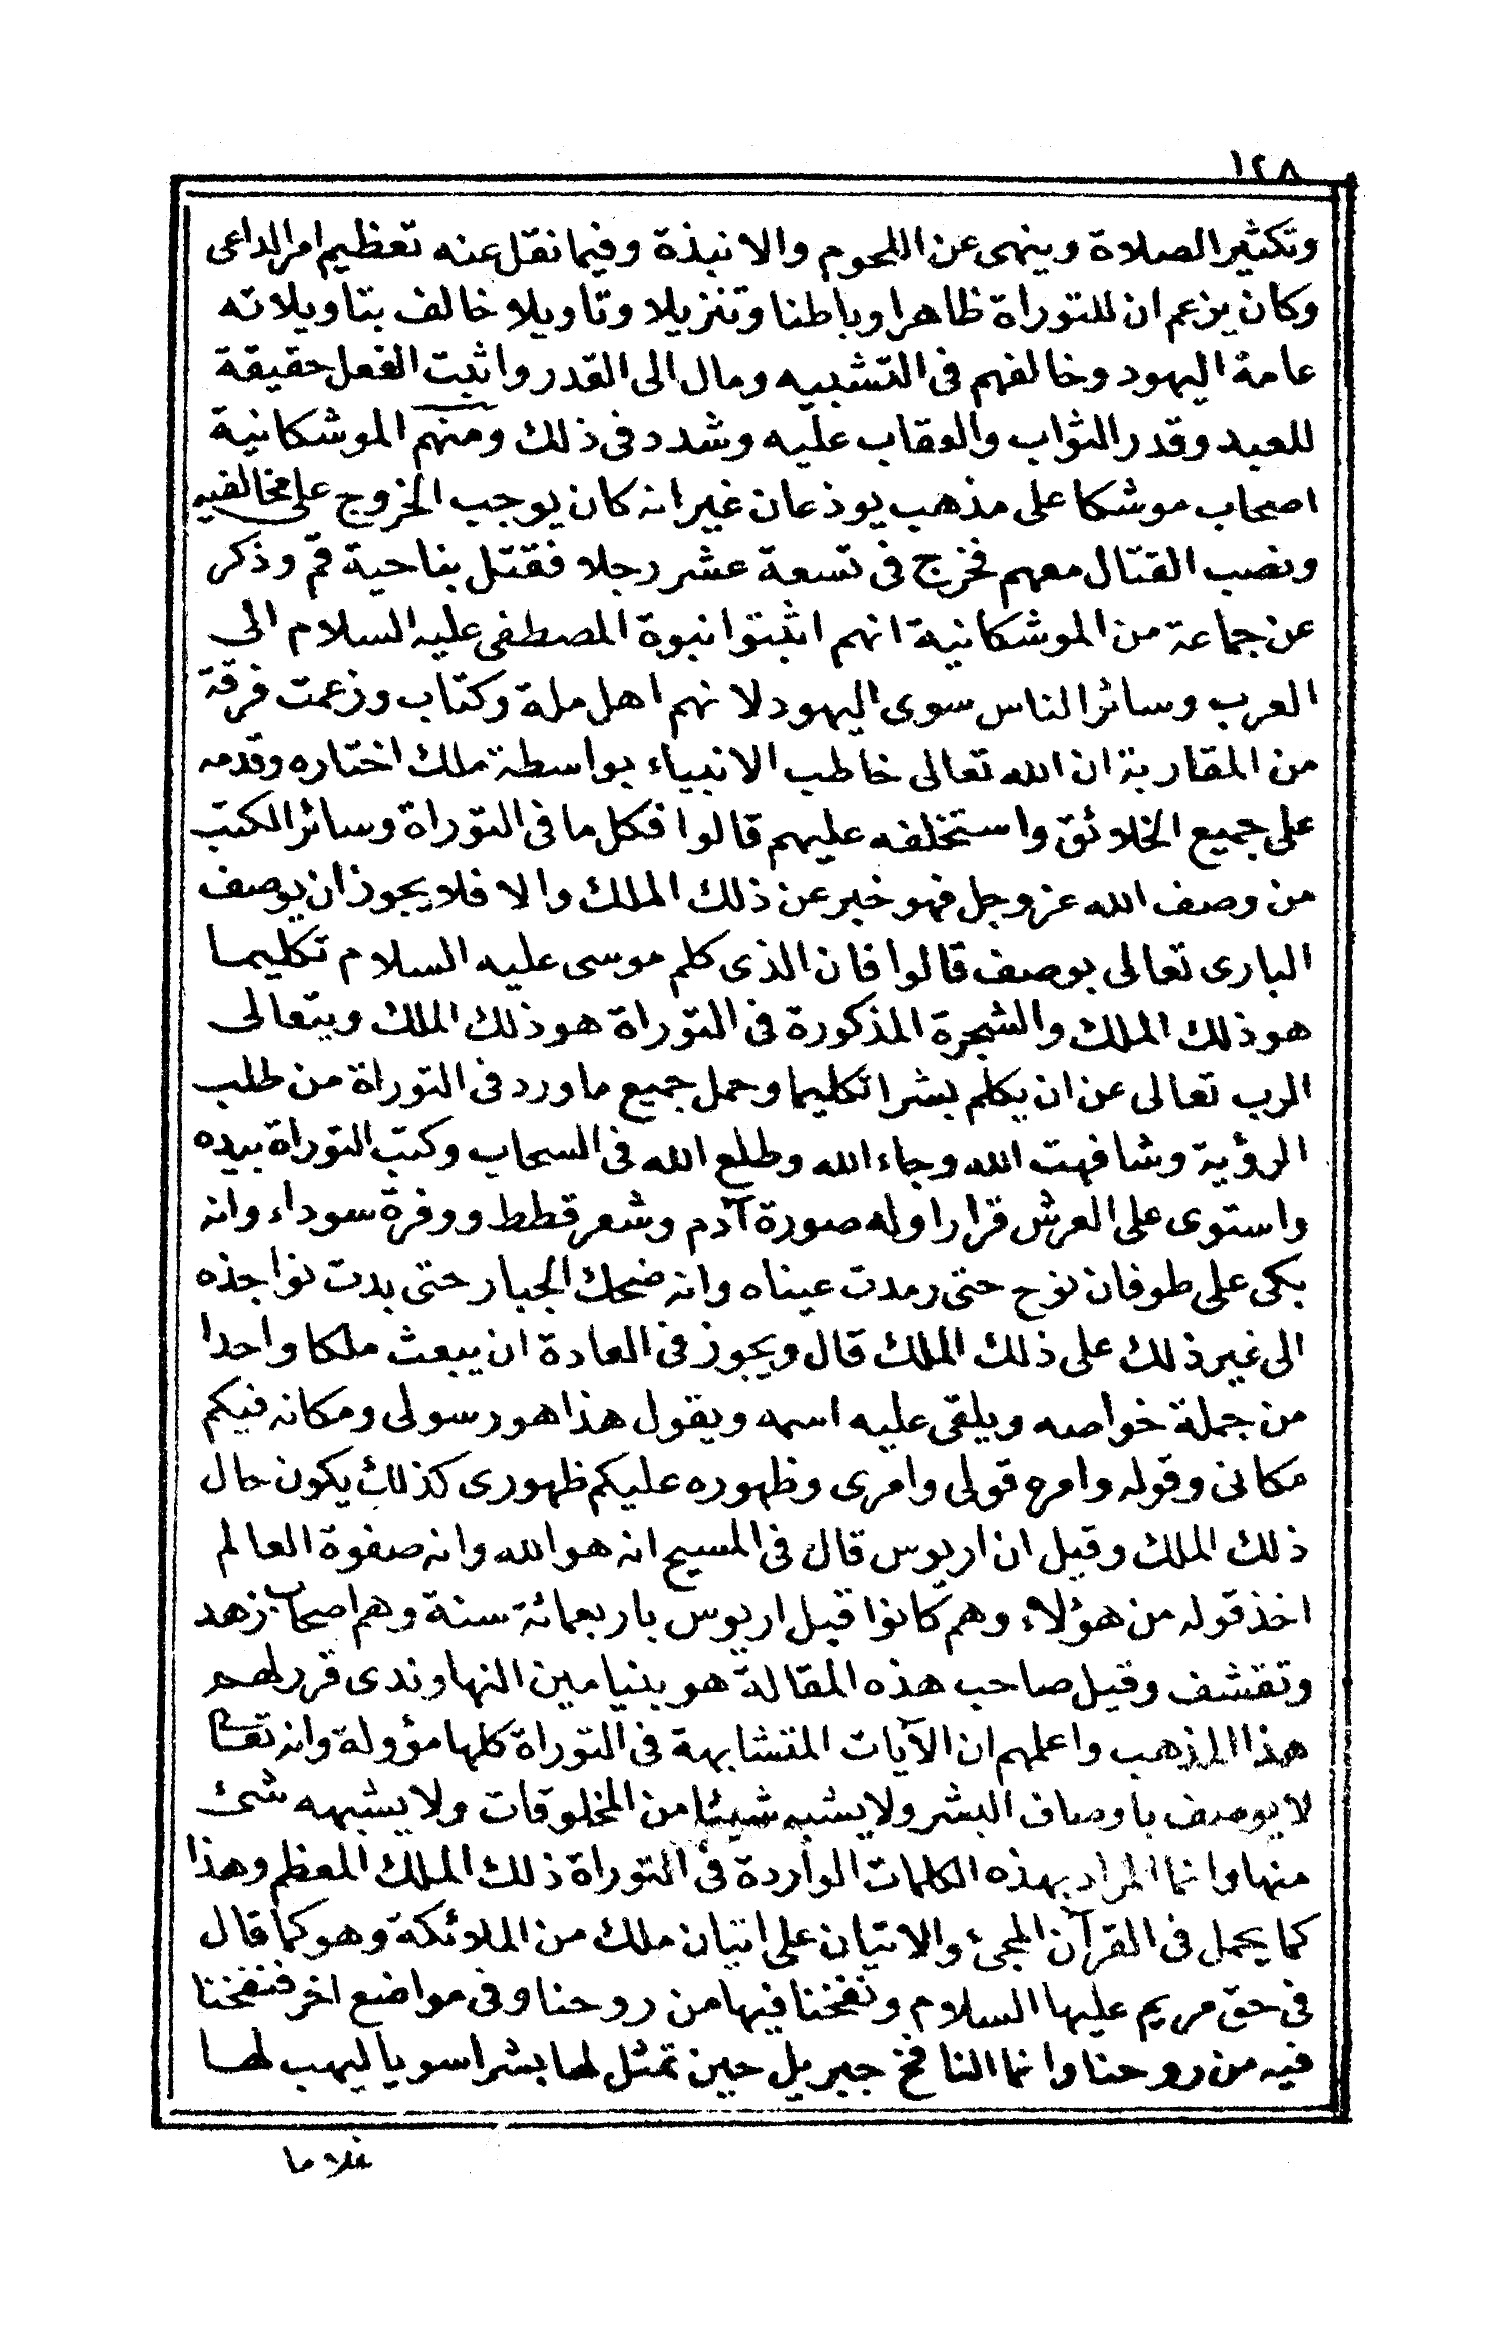 ١٢٨
وتكثير الصلاة وينهى عن اللحوم والانبذة وفيما نقل عنه تعظيم امر الداعى
وكان يزعم ان للتوراة ظاهرا وباطنا وتنزيلا وتاويلا خالف بتاويلاته
عامة اليهود وخالفهم فى التشبيه ومال الى القدر واثبت الفعل حقيقة
للعبد وقدر الثواب والعقاب عليه وشدد فى ذلك ومنهم الموشكانية
اصحاب موشكا على مذهب يوذعان غير انه كان يوجب الخروج على مخالفيه
ونصب القتال معهم فخرج فى تسعة عشر رجلا فقتل بناحية قم وذكر
عن جماعة من الموشكانية انهم اثبتوا نبوة المصطفى عليه السلام الى
العرب وسائر الناس سوى اليهود لانهم اهل ملة وكتاب وزعمت فرقة
من المقاربة ان الله تعالى خاطب الانبياء بواسطة ملك اختاره وقدمه
على جميع الخلائق واستخلفه عليهم قالوا فكل ما فى التوراة وسائر الكتب
من وصف الله عز وجل فهو خبر عن ذلك الملك والا فلا يجوز ان يوصف
البارى تعالى بوصف قالوا فان الذى كلم موسى عليه السلام تكليما
هو ذلك الملك والشجرة المذكورة فى التوراة هو ذلك الملك ويتعالى
الرب تعالى عن ان يكلم بشرا تكليما وحمل جميع ما ورد فى التوراة من طلب
الرؤية وشافهت الله وجاء الله وطلع الله فى السحاب وكتب التوراة بيده
واستوى على العرش قرارا وله صورة آدم وشعر قطط ووفرة سوداء وانه
بكى على طوفان نوح حتى رمدت عيناه وانه ضحك الجبار حتى بدت نواجذه
الى غير ذلك على ذلك الملك قال ويجوز فى العادة ان يبعث ملكا واحدا
من جملة خواصه ويلقى عليه اسمه ويقول هذا هو رسولى ومكانه فيكم
مكانى وقوله وامره قولى وامرى وظهوره عليكم ظهورى كذلك يكون حال
ذلك الملك وقيل ان اريوس قال فى المسيح انه هو الله وانه صفوة العالم
اخذ قوله من هؤلاء وهم كانوا قبل اريوس باربعمائة سنة وهم اصحاب زهد
وتقشف وقيل صاحب هذه المقالة هو بنيامين النهاوندى قرر لهم
هذا المذهب واعلمهم ان الآيات المتشابهة فى التوراة كلها مؤولة وانه تعا
لا يوصف باوصاف البشر ولا يشبه شيئا من المخلوقات ولا يشبهه شئ
منها وانما المراد بهذه الكلمات الواردة فى التوراة ذلك الملك المعظم وهذا
كما يحمل فى القرآن المجئ والاتيان على اتيان ملك من الملائكة وهو كما قال
فى حق مريم عليها السلام ونفخنا فيها من روحنا وفى مواضع اخر فنفخنا
فيه من روحنا وانما النافخ جبريل حين تمثل لها بشرا سويا ليهب لها
غلاما